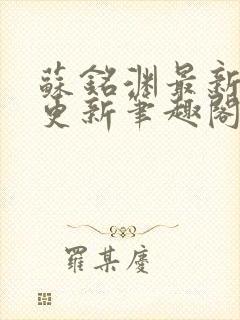 蘇銘淵最新
更新筆趣閣
羅某慶